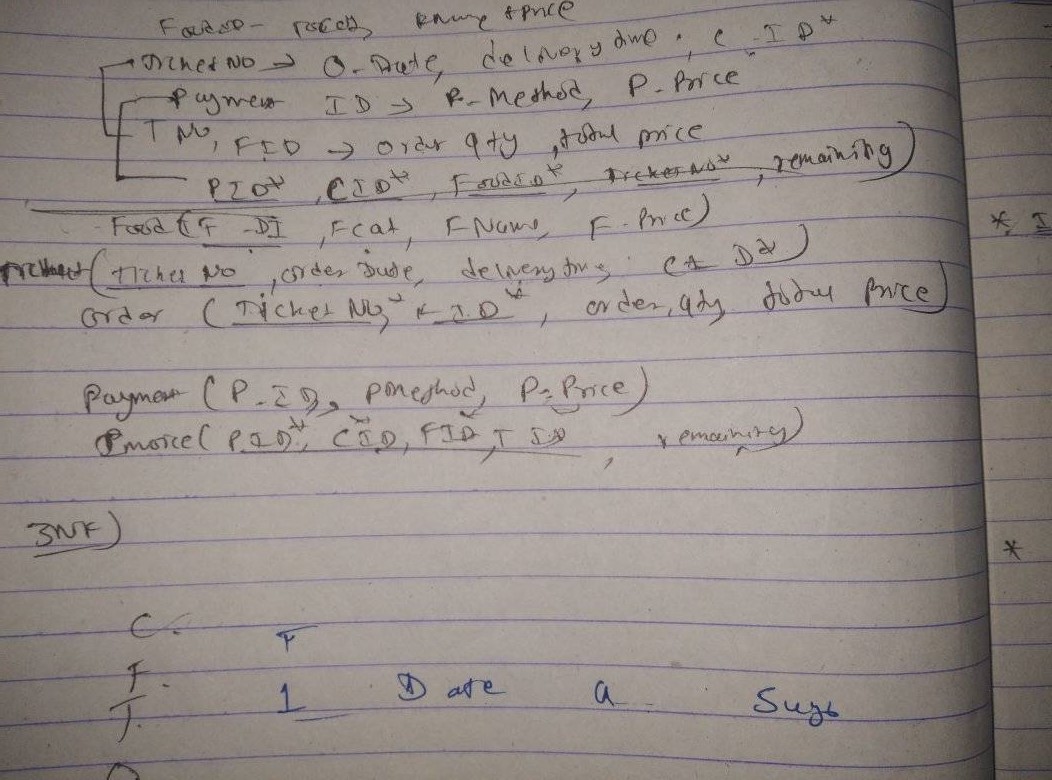 price
Ticket No → O-Date, delivery time, C-ID*
Payment ID → P-Method, P-Price
T No, FID → order qty, total price
PID*, CID*, FoodID*, TicketNo*, remaining)
Food (F-DI, Fcat, FName, F-Price)
(Ticket No, order Date, delivery time,
order (Ticket No,* F ID*, order, qty, total Price)
Payment (P-ID, pmethod, P-Price)
(PID*, CID, FID, T ID, remaining)
3NF)
C.
T
F.
1 Date a
T.
*
*